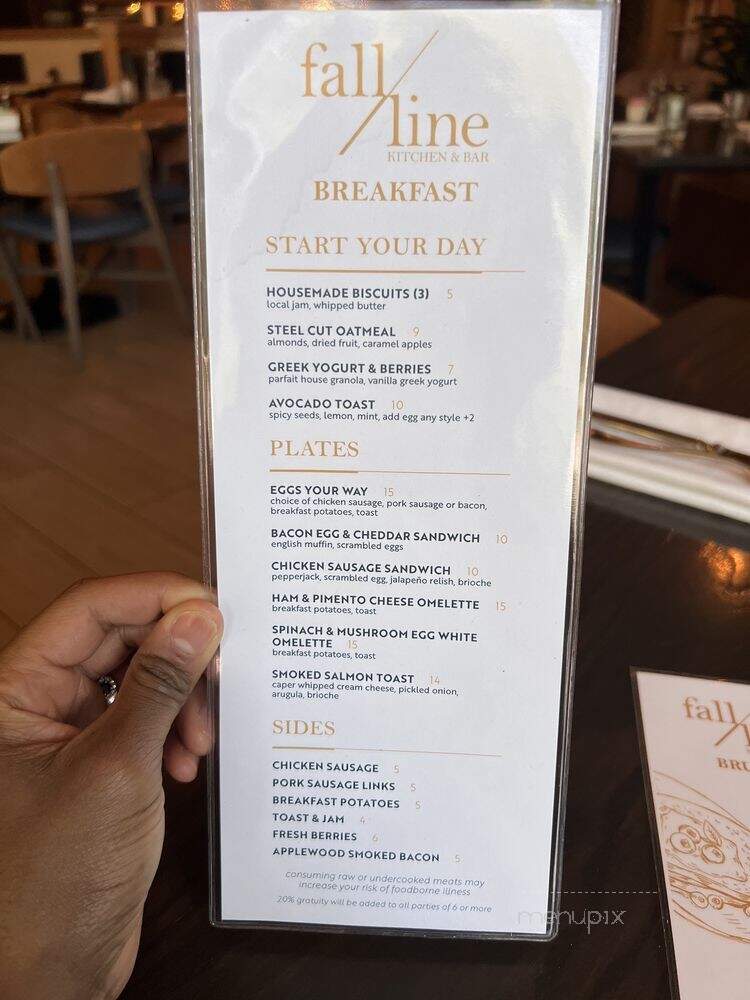 fall/line
KITCHEN & BAR
BREAKFAST
START YOUR DAY
HOUSEMADE BISCUITS (3) 5
local jam, whipped butter
STEEL CUT OATMEAL 9
almonds, dried fruit, caramel apples
GREEK YOGURT & BERRIES 7
parfait house granola, vanilla greek yogurt
AVOCADO TOAST 10
spicy seeds, lemon, mint, add egg any style +2
PLATES
EGGS YOUR WAY 15
choice of chicken sausage, pork sausage or bacon,
breakfast potatoes, toast
BACON EGG & CHEDDAR SANDWICH 10
english muffin, scrambled eggs
CHICKEN SAUSAGE SANDWICH 10
pepperjack, scrambled egg, jalapeño relish, brioche
HAM & PIMENTO CHEESE OMELETTE 15
breakfast potatoes, toast
SPINACH & MUSHROOM EGG WHITE
OMELETTE 15
breakfast potatoes, toast
SMOKED SALMON TOAST 14
caper whipped cream cheese, pickled onion,
arugula, brioche
SIDES
CHICKEN SAUSAGE 5
PORK SAUSAGE LINKS 5
BREAKFAST POTATOES 5
TOAST & JAM 4
FRESH BERRIES 6
APPLEWOOD SMOKED BACON 5
consuming raw or undercooked meats may
increase your risk of foodborne illness
20% gratuity will be added to all parties of 6 or more
menupix
fall/
BRU